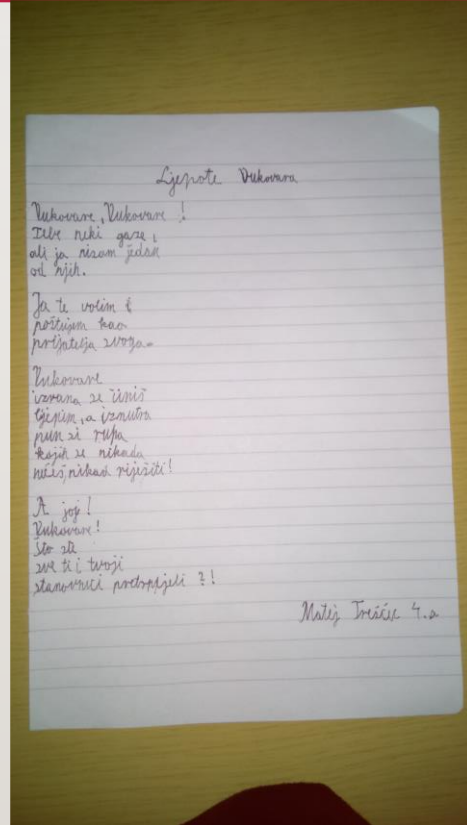 Ljepote Vukovara
Vukovare, Vukovare !
Tebe neki gaze,
ali ja nisam jedan
od njih.
Ja te volim i
poštujem kao
prijatelja svoga.
Vukovare
izvana se činiš
lijepim, a iznutra
pun si rupa
kojih se nikada
nećeš, nikad riješiti!
A joj!
Vukovare!
Što ste
sve ti i tvoji
stanovnici pretrpjeli ?!
Matej Trešček 4.a